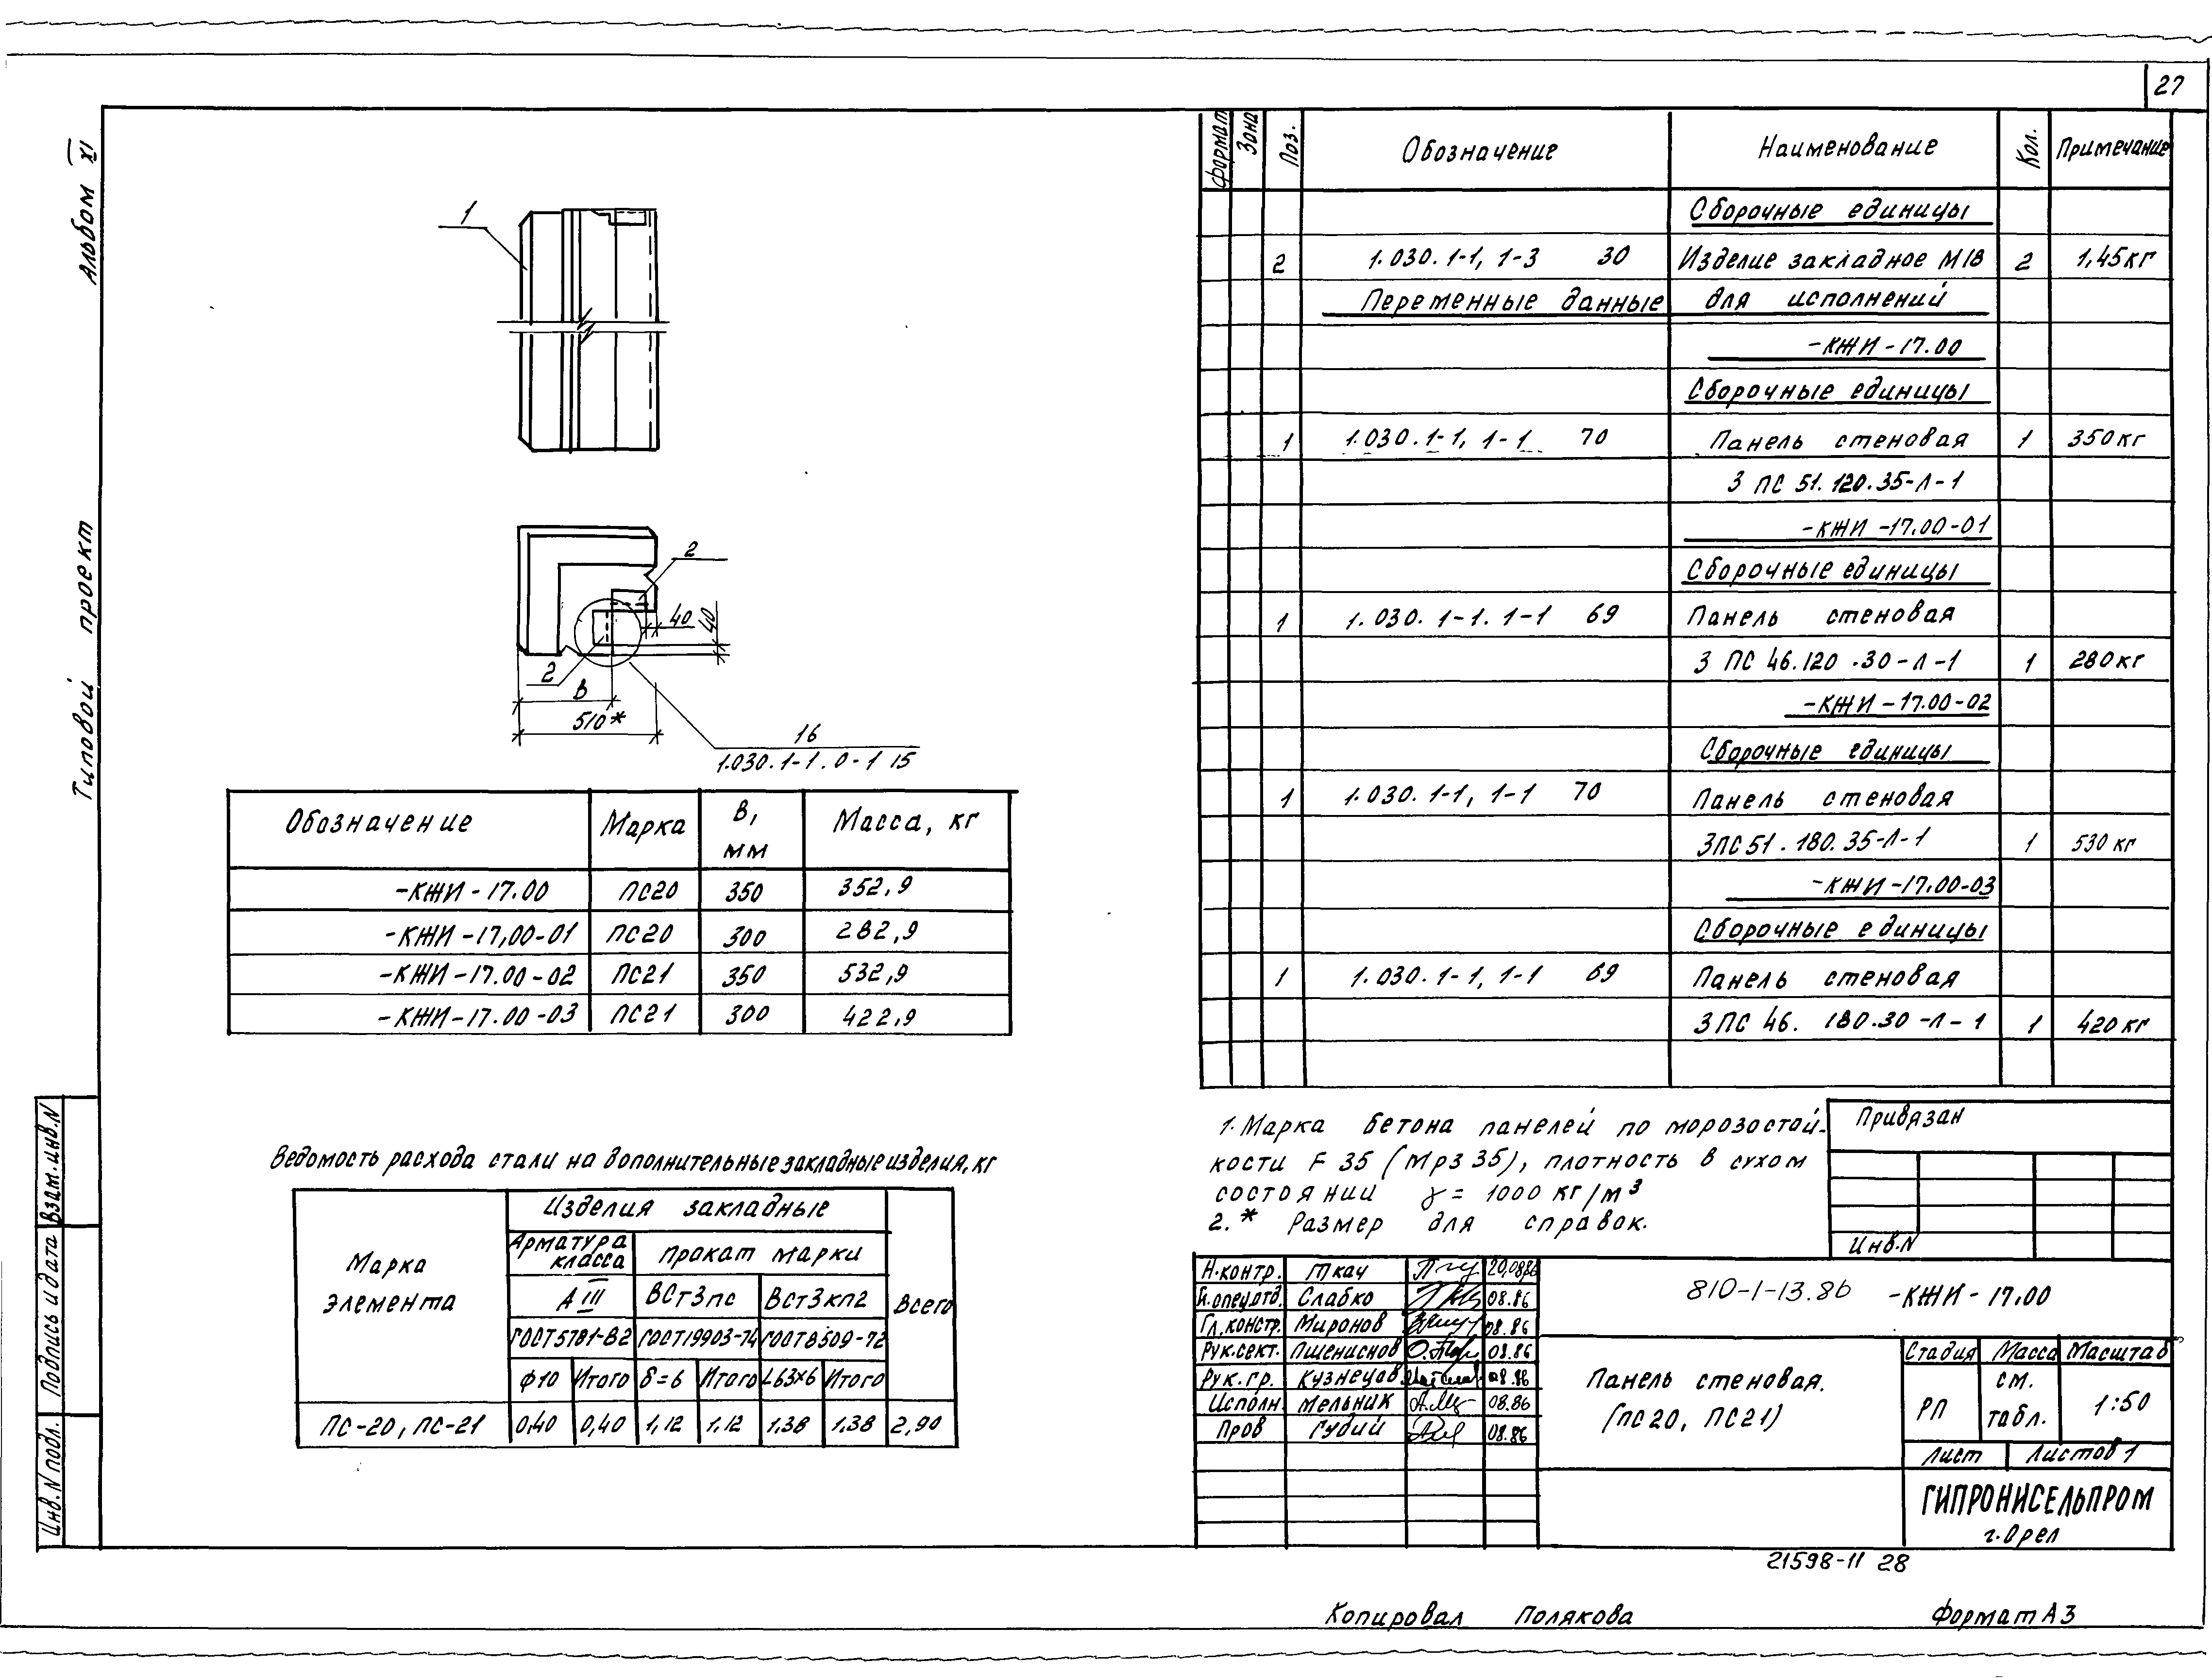 27
Альбом XI
Типовой проект
1
2
40
40
2
В
510*
16
1.030.1-1.0-1 15
Обозначение Марка В, мм Масса, кг
-КЖИ-17.00 ПС20 350 352,9
-КЖИ-17,00-01 ПС20 300 282,9
-КЖИ-17.00-02 ПС21 350 532,9
-КЖИ-17.00-03 ПС21 300 422,9
Ведомость расхода стали на дополнительные закладные изделия, кг
Марка элемента
Изделия закладные
Всего
Арматура класса
Прокат марки
А III ВСт3пс ВСт3кп2
ГОСТ5781-82 ГОСТ19903-74 ГОСТ8509-72
ф10 Итого δ=6 Итого L63×6 Итого
ПС-20, ПС-21 0,40 0,40 1,12 1,12 1,38 1,38 2,90
Формат Зона Поз. Обозначение Наименование Кол. Примечание
Сборочные единицы
2 1.030.1-1, 1-3 30 Изделие закладное М18 2 1,45кг
Переменные данные для исполнений
-КЖИ-17.00
Сборочные единицы
1 1.030.1-1, 1-1 70 Панель стеновая 1 350кг
3 ПС 51.120.35-Л-1
-КЖИ-17.00-01
Сборочные единицы
1 1.030.1-1.1-1 69 Панель стеновая
3 ПС 46.120.30-Л-1 1 280кг
-КЖИ-17.00-02
Сборочные единицы
1 1.030.1-1, 1-1 70 Панель стеновая
3ПС51.180.35-Л-1 1 530кг
-КЖИ-17.00-03
Сборочные единицы
1 1.030.1-1, 1-1 69 Панель стеновая
3ПС 46.180.30-Л-1 1 420кг
1. Марка бетона панелей по морозостой-
кости F 35 (Мрз 35), плотность в сухом
состоянии γ = 1000 кг/м³
2.* Размер для справок.
Привязан
Инв.N
Н.контр. Ткач 20.08.86
Гл.спец.отд. Слабко 08.86
Гл.констр. Миронов 08.86
Рук.сект. Пшениснов 08.86
Рук.гр. Кузнецов 08.86
Исполн. Мельник 08.86
Пров Гудий 08.86
810-1-13.86 -КЖИ-17.00
Панель стеновая.
(ПС20, ПС21)
Стадия Масса Масштаб
РП см. табл. 1:50
Лист Листов 1
ГИПРОНИСЕЛЬПРОМ
г.Орел
Взам.инв.N
Подпись и дата
Инв.N подл.
21598-11 28
Копировал Полякова Формат А3